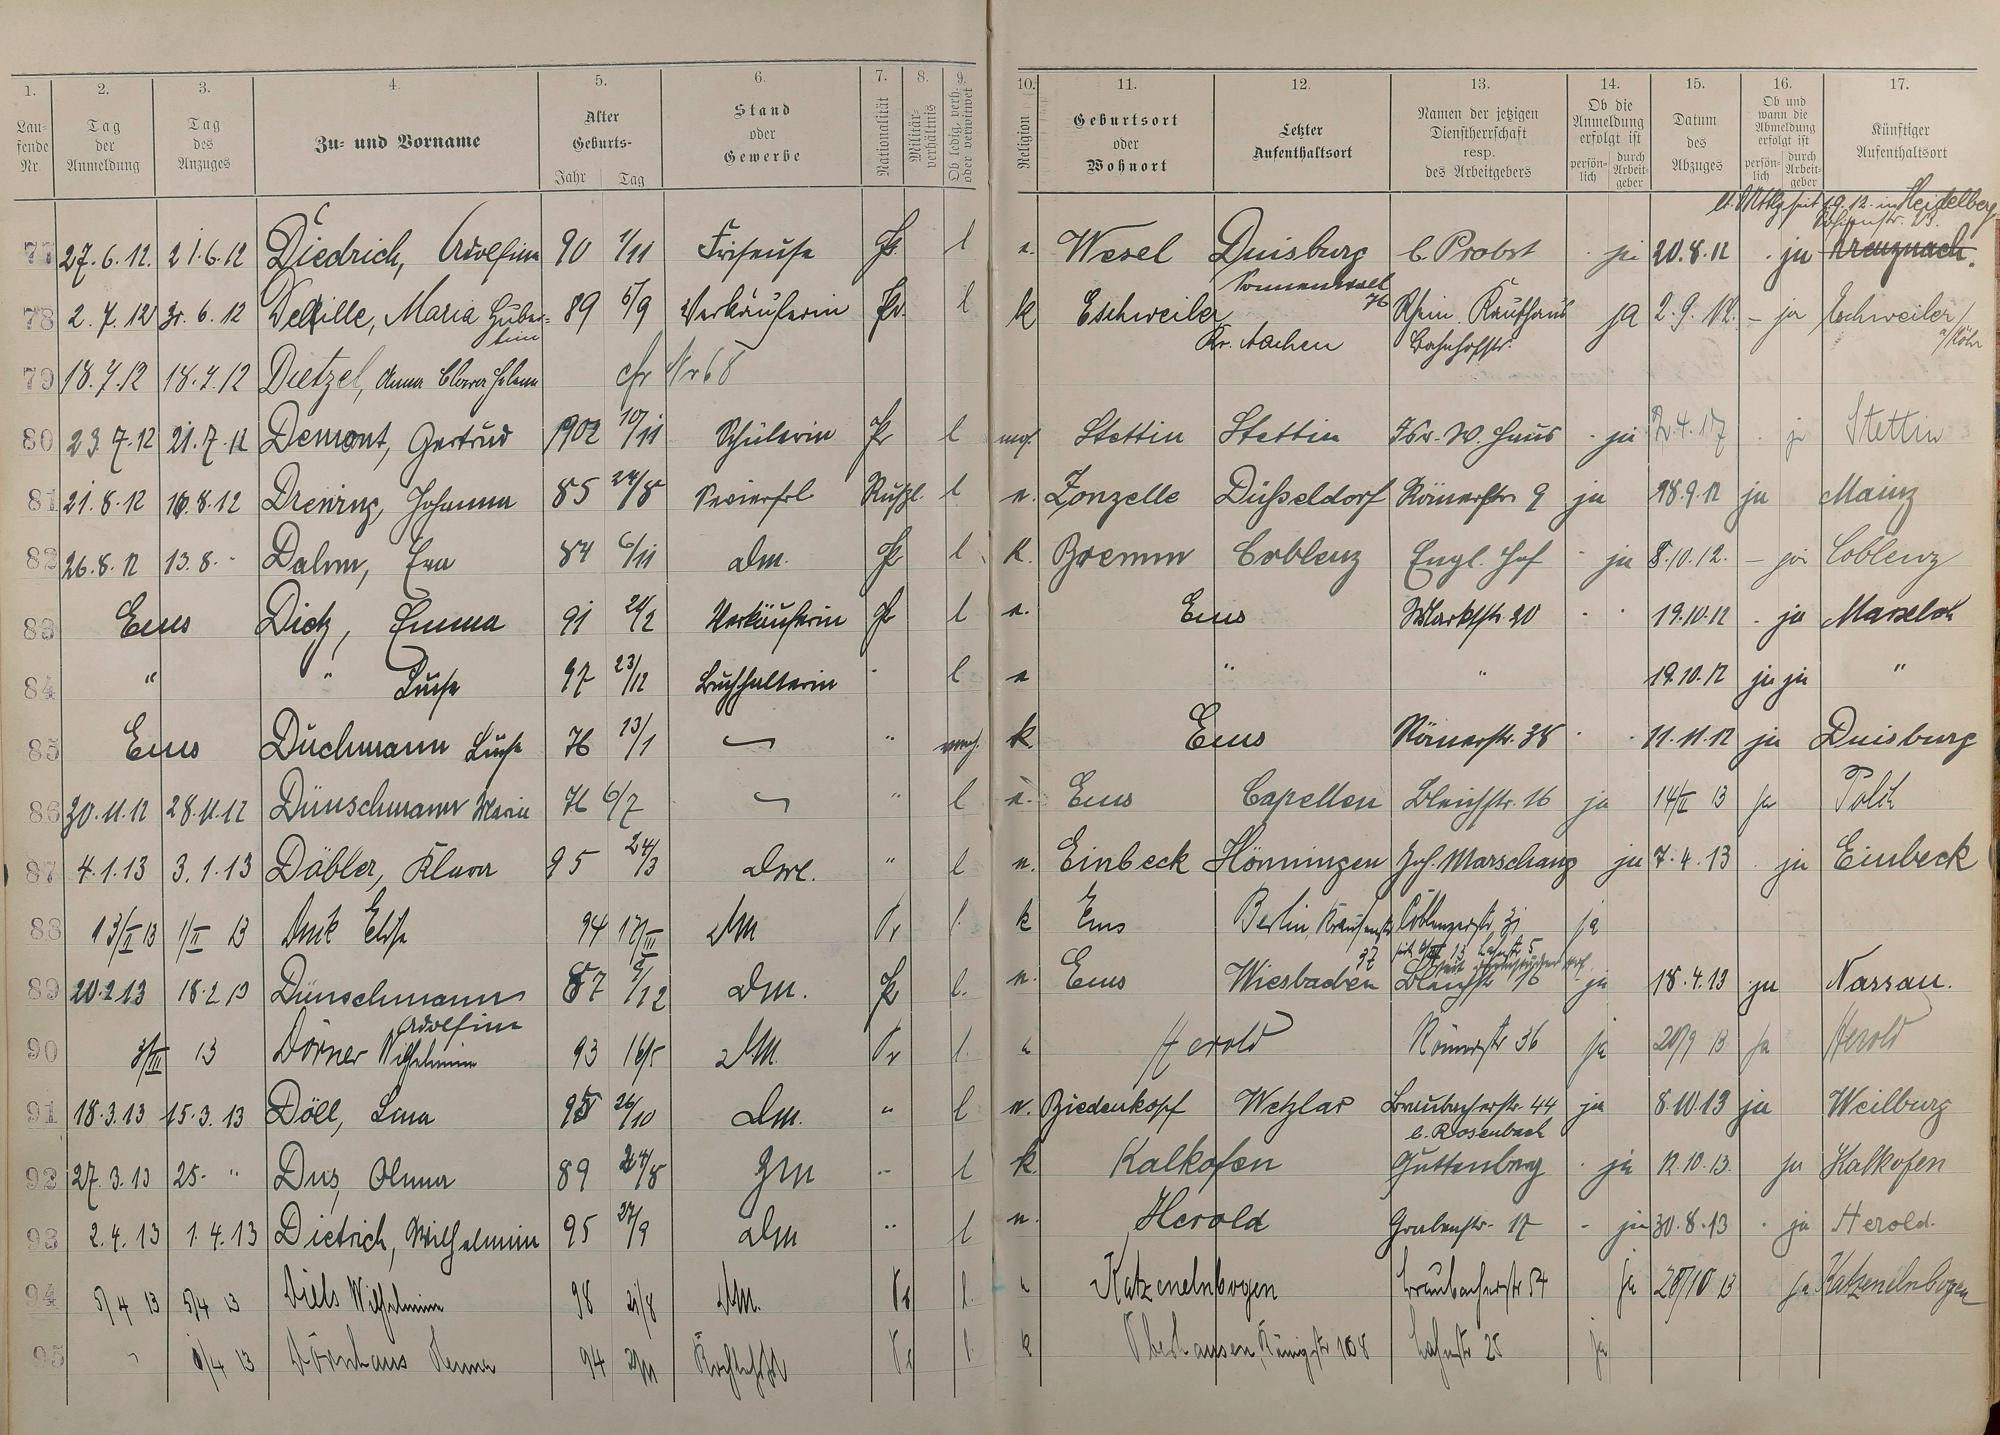 1. 2. 3. 4. 5. 6. 7. 8. 9. 10. 11. 12. 13. 14. 15. 16. 17.
Lau-fende Nr. Tag der Anmeldung Tag des Anzuges Zu- und Vorname Alter Geburts- Jahr Tag Stand oder Gewerbe Nationalität Militär-verhältnis Ob ledig, verh. oder verwitwet Religion Geburtsort oder Wohnort Letzter Aufenthaltsort Namen der jetzigen Dienstherrschaft resp. des Arbeitgebers Ob die Anmeldung erfolgt ist persön-lich durch Arbeit-geber Datum des Abzuges Ob und wann die Abmeldung erfolgt ist persön-lich durch Arbeit-geber Künftiger Aufenthaltsort
in Heidelberg
77 27.6.12. 21.6.12 Diedrich, Adolfine 90 1/11 Friseuse Pr. l Wesel Duisburg b. Probst ja 20.8.12 ja Kreuznach.
Sonnenwall 76
78 2.7.12 30.6.12 Delille, Maria Huber-tine 89 5/9 Verkäuferin Pr. l k Eschweiler Kr. Aachen Rhein. Kaufhaus Bahnhofstr. ja 2.9.12. – ja Eschweiler
79 18.7.12 18.7.12 Dietzel, Anna Clara Helene cfr Nr 68
80 23.7.12 21.7.12 Demont, Gertrud 1902 10/11 Schülerin Pr l mos. Stettin Stettin Isr. W. Haus ja ja Stettin
81 21.8.12 16.8.12 Johanna 85 24/8 Servierfrl Rußl. l Zonzelle Düsseldorf Römerstr 9 ja 18.9.12 ja Mainz
82 26.8.12 13.8. Dahm, Eva 84 6/11 dm. Pr l k. Bremm Coblenz Engl. Hof ja 8.10.12. – ja Coblenz
83 Ems Dietz, Emma 91 24/2 Verkäuferin Pr l Ems Marktstr. 20 19.10.12 ja
84 " " Luise 97 23/12 Buchhalterin l " " 19.10.12 ja ja "
85 Ems Duchmann Luise 76 13/1 " k Ems Römerstr. 38 11.11.12 ja Duisburg
86 30.11.12 28.11.12 Dünschmann Maria 76 6/7 " l Ems Capellen Bleichstr. 16 ja 14/II 13 ja Polch
87 4.1.13 3.1.13 Däbler, Klara 95 24/3 " l Einbeck Hönningen Jos. Marschang ja 7.4.13 ja Einbeck
88 13/II 13 1/II 13 Elise 94 17/III dM Pr l. k Ems Berlin, Krausenstr 37 Coblenzerstr 31 ja
89 20.2.13 18.2.13 Dünschmann Adolfine 87 5/12 dm. Pr l. Ems Wiesbaden Bleichstr 16 ja 18.4.13 ja Nassau.
90 3/III 13 Dörner Wilhelmine 93 16/5 dM. Pr l. Herold Römerstr 36 ja 20/9 13 ja Herold
91 18.3.13 15.3.13 Döll, Lina 95 26/10 dm. " l Biedenkopf Wetzlar Braubacherstr. 44 b. Rosenbach ja 8.10.13 ja Weilburg
92 27.3.13 25. " Dus, Anna 89 24/8 l k Kalkofen Guttenberg ja 12.10.13. ja Kalkofen
93 2.4.13 1.4.13 Dietrich, Wilhelmine 95 27/9 dm " l Herold Grabenstr. 17 - ja 30.8.13 ja Herold.
94 5/4 13 5/4 13 Diels Wilhelmine 98 21/8 dM. Pr l. Katzenelnbogen Braubacherstr 54 ja 28/10 13 ja Katzenelnbogen
95 " /4 13 Dörnhaus 94 Pr l. k Oberhausen, Königstr 108 Lahnstr 25 ja